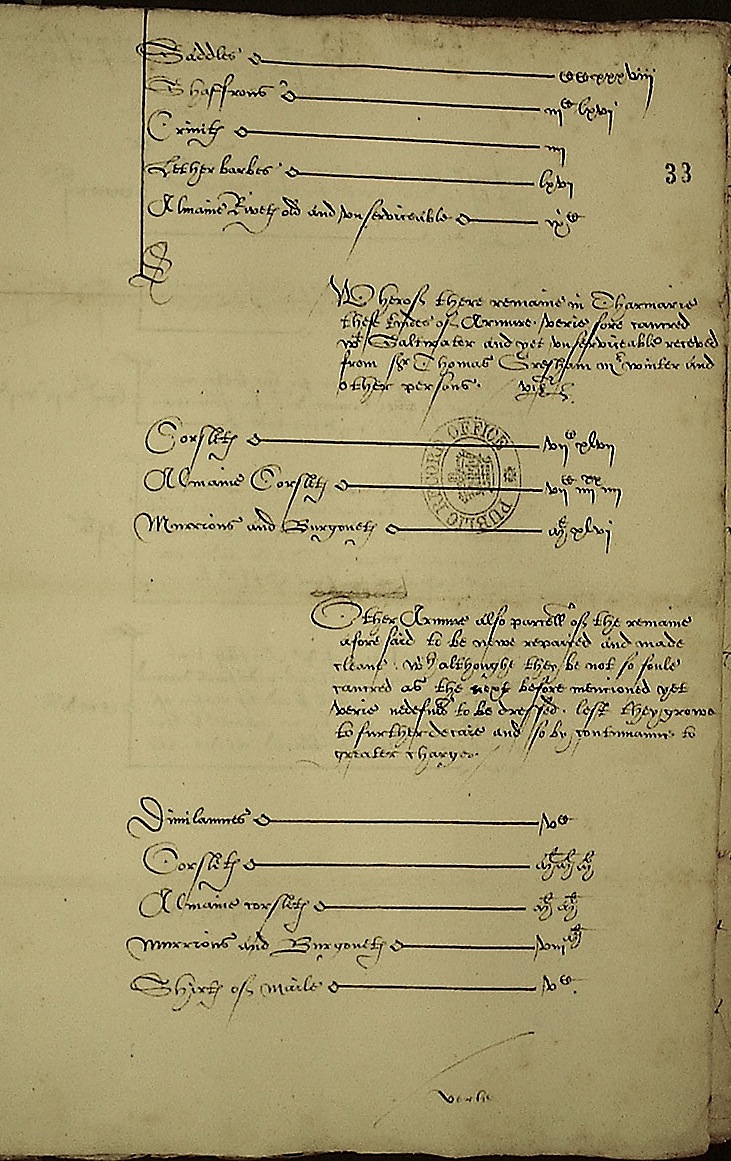 Saddles CCxxxviij
Shaffrons iijC lxvj
Crinetes iiij
Lether barbes lxvj
Almaine Rivetes old and unserviceable ixC
33
Wherof there remaine in Tharmarie
these kyndes of Armure verie sore cancred
wt Saltwater and yet unserviceable receved
from Sr Thomas Gresham mr winter and
other persons. viz
Corsletes vijC xlvij
Almaine Corsletes vijC iiijxx iiij
Murrions and Burgonetes xlvj
PUBLIC RECORD OFFICE
Other Armure also parcell of the remaine
afore said to be newe repaired and made
cleane. wch althoughe they be not so foule
cancred as the next before mentioned yet
verie nedefull to be dressed. lest they growe
to further decaie and so by contynuaunce to
greater charges.
Dimilaunces vC
Corsletes
Almaine corsletes
murrions and Burgonetes viijM
Shirtes of maile vC